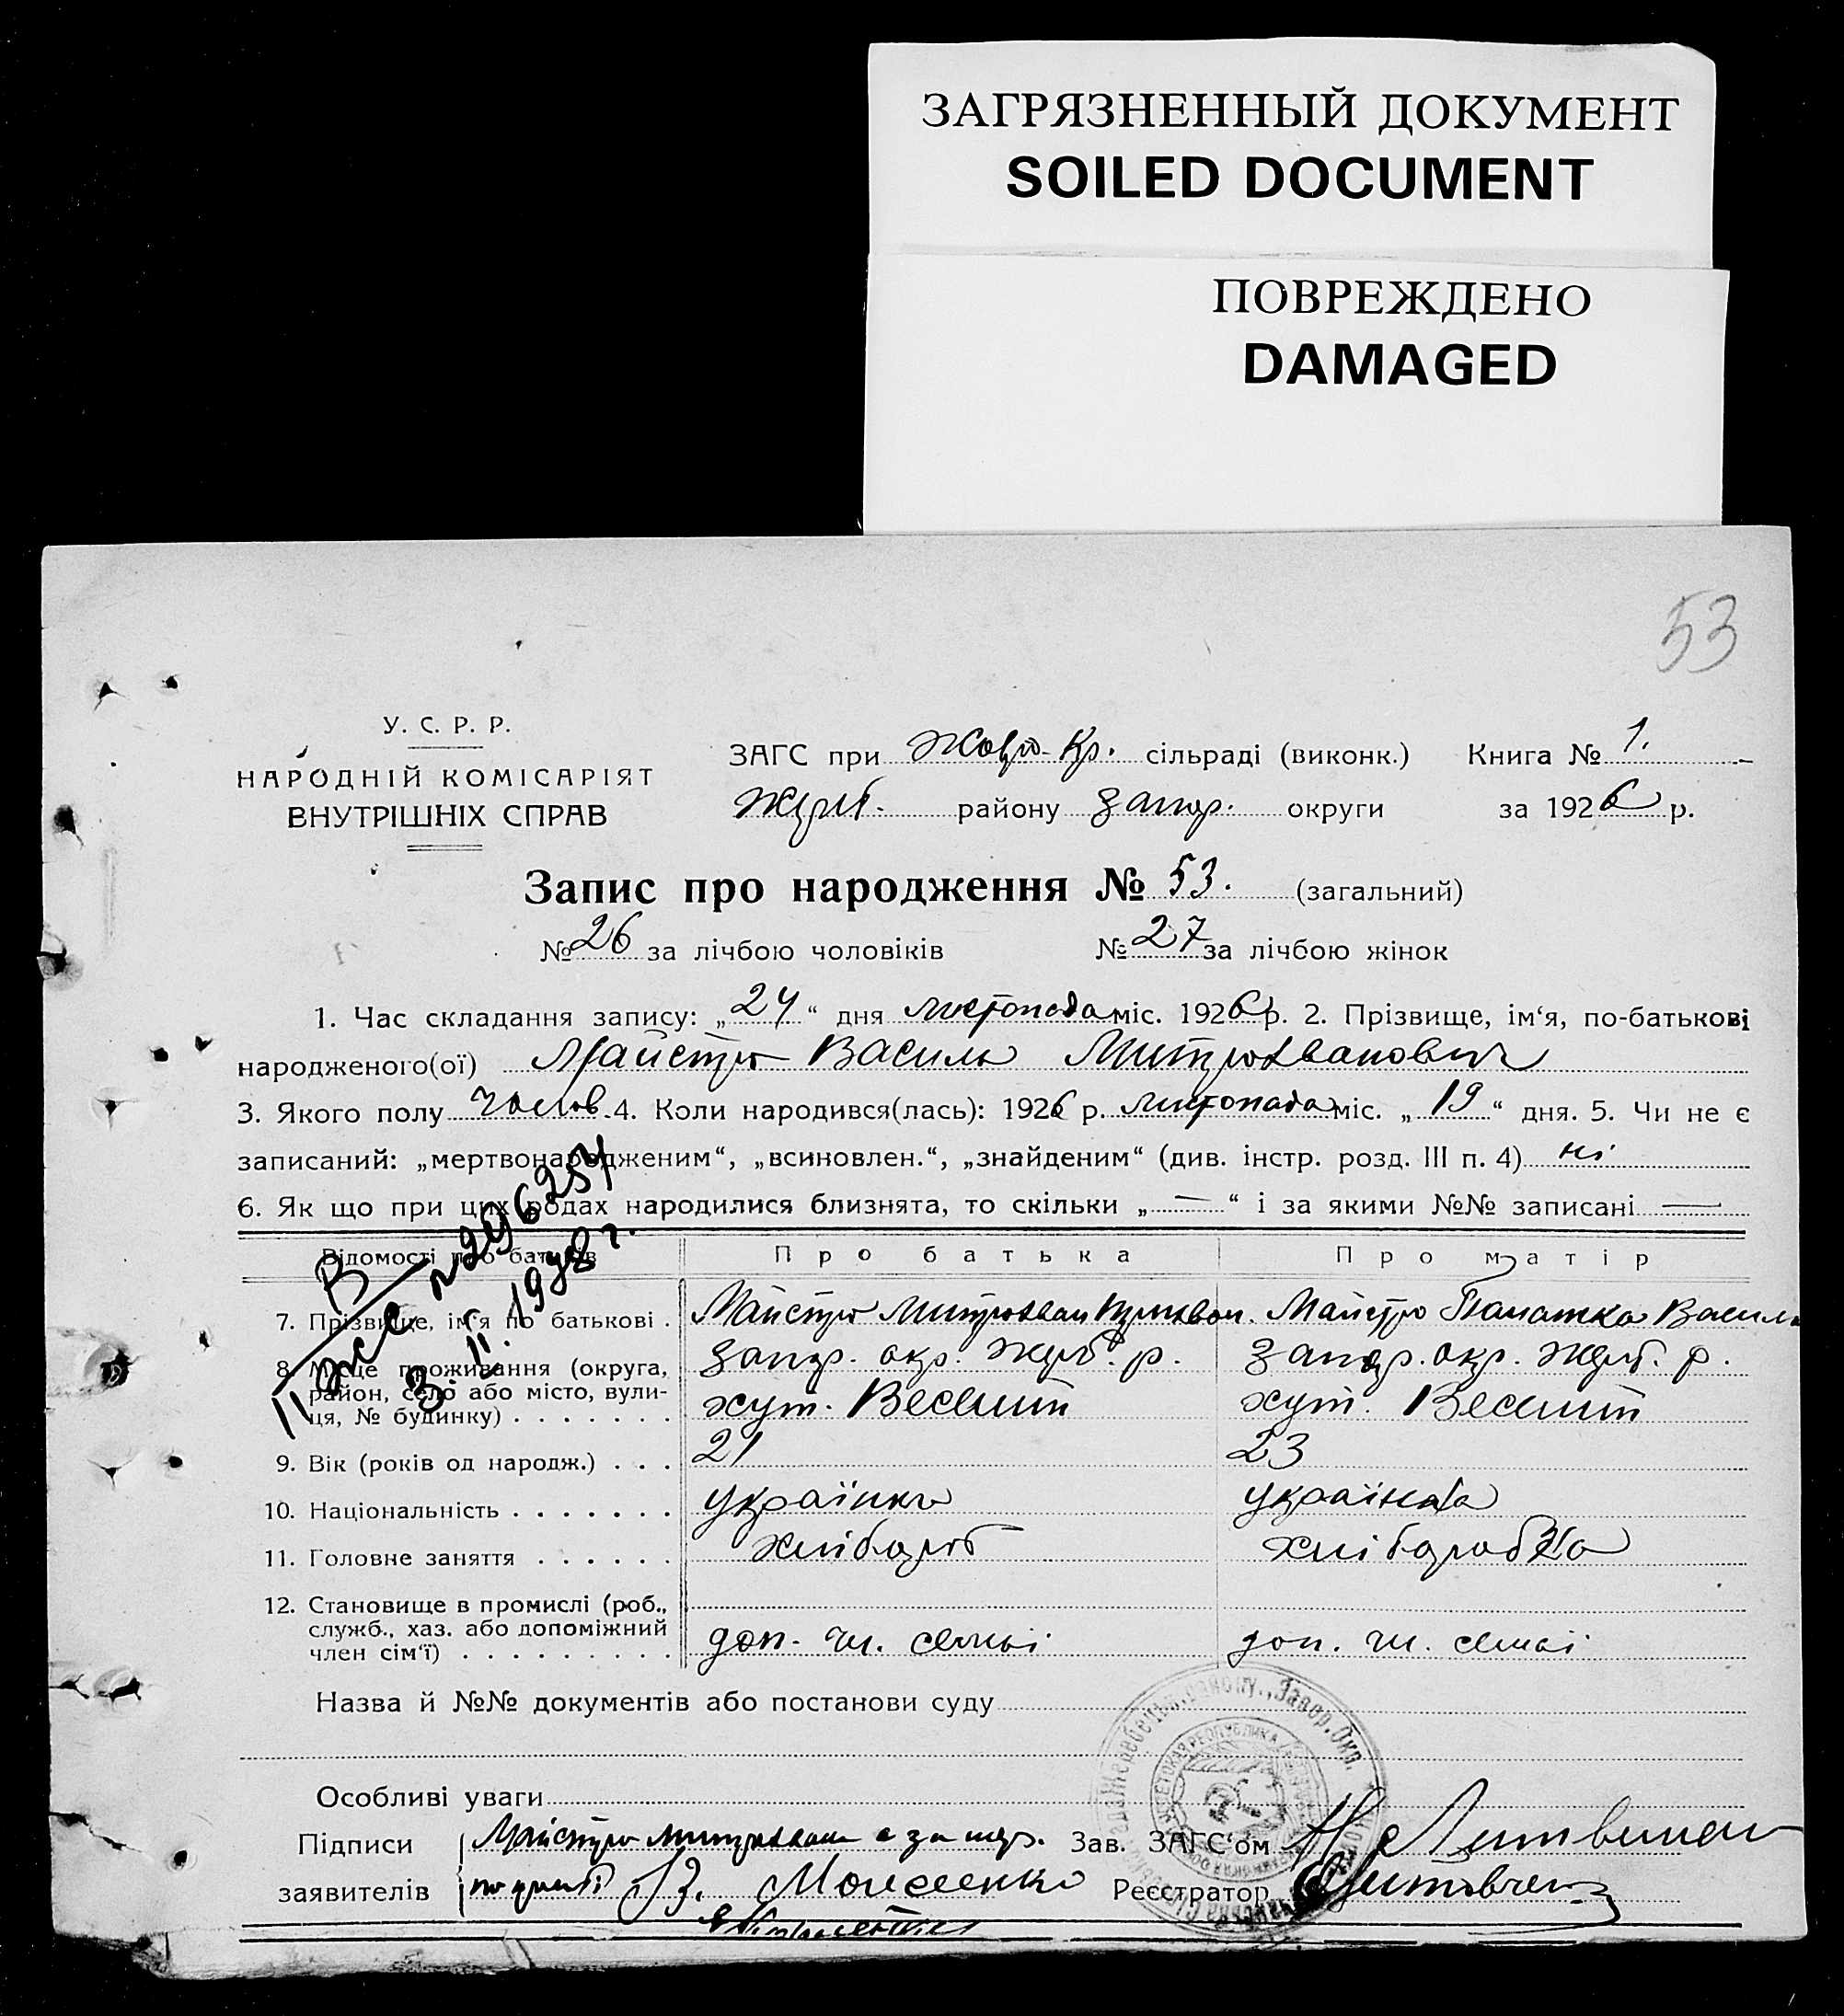 ЗАГРЯЗНЕННЫЙ ДОКУМЕНТ
SOILED DOCUMENT
ПОВРЕЖДЕНО
DAMAGED
53
У. С. Р. Р.
НАРОДНІЙ КОМІСАРІЯТ
ВНУТРІШНІХ СПРАВ
ЗАГС при Жовт-Кр. сільраді (виконк.) Книга № 1.
Жереб. району Запор. округи за 1926 р.
Запис про народження № 53. (загальний)
№ 26 за лічбою чоловіків № 27 за лічбою жінок
1. Час складання запису: „24“ дня листопада міс. 1926 р. 2. Прізвище, ім‘я, по-батькові
народженого(ої) Майстро Василь Митрофанович
3. Якого полу чолов. 4. Коли народився(лась): 1926 р. листопада міс. „19“ дня. 5. Чи не є
записаний: „мертвонародженим“, „всиновлен.“, „знайденим“ (див. інстр. розд. III п. 4) ні
6. Як що при цих родах народилися близнята, то скільки „—“ і за якими №№ записані —
Відомості про батьків Про батька Про матір
7. Прізвище, ім‘я по батькові . Майстро Митрофан Майстро Василь
8. Місце проживання (округа, Запор. окр. Жереб. р. Запор. окр. Жереб. р.
район, село або місто, вули-
ця, № будинку) . . . . . . . хут. Веселий хут. Веселий
9. Вік (років од народж.) . . . 21 23
10. Національність . . . . . . . українец українка
11. Головне заняття . . . . . . хлібороб хліборобка
12. Становище в промислі (роб.,
служб., хаз. або допоміжний
член сім‘ї) . . . . . . . . . доп. чл. семьі доп. чл. семьі
Назва й №№ документів або постанови суду
Особливі уваги
Підписи Майстро Митрофан а за Зав. ЗАГС‘ом Литвинен
заявителів Моисеенко Реєстратор
№ 296254
3.II.1948 г.